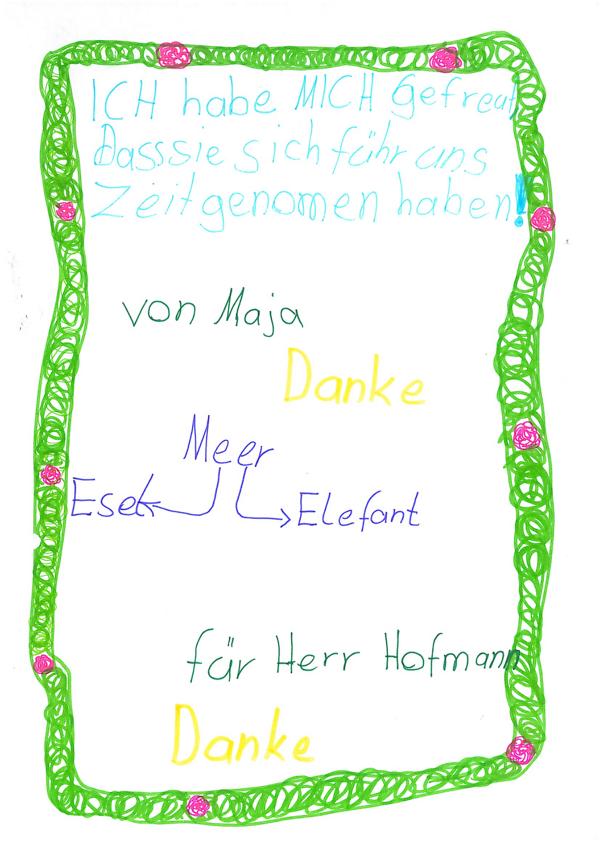 ICH habe MICH Gefreut
Dasssie sich führ uns
Zeit genomen haben!
von Maja
Danke
Meer
Esel Elefant
für Herr Hofmann
Danke